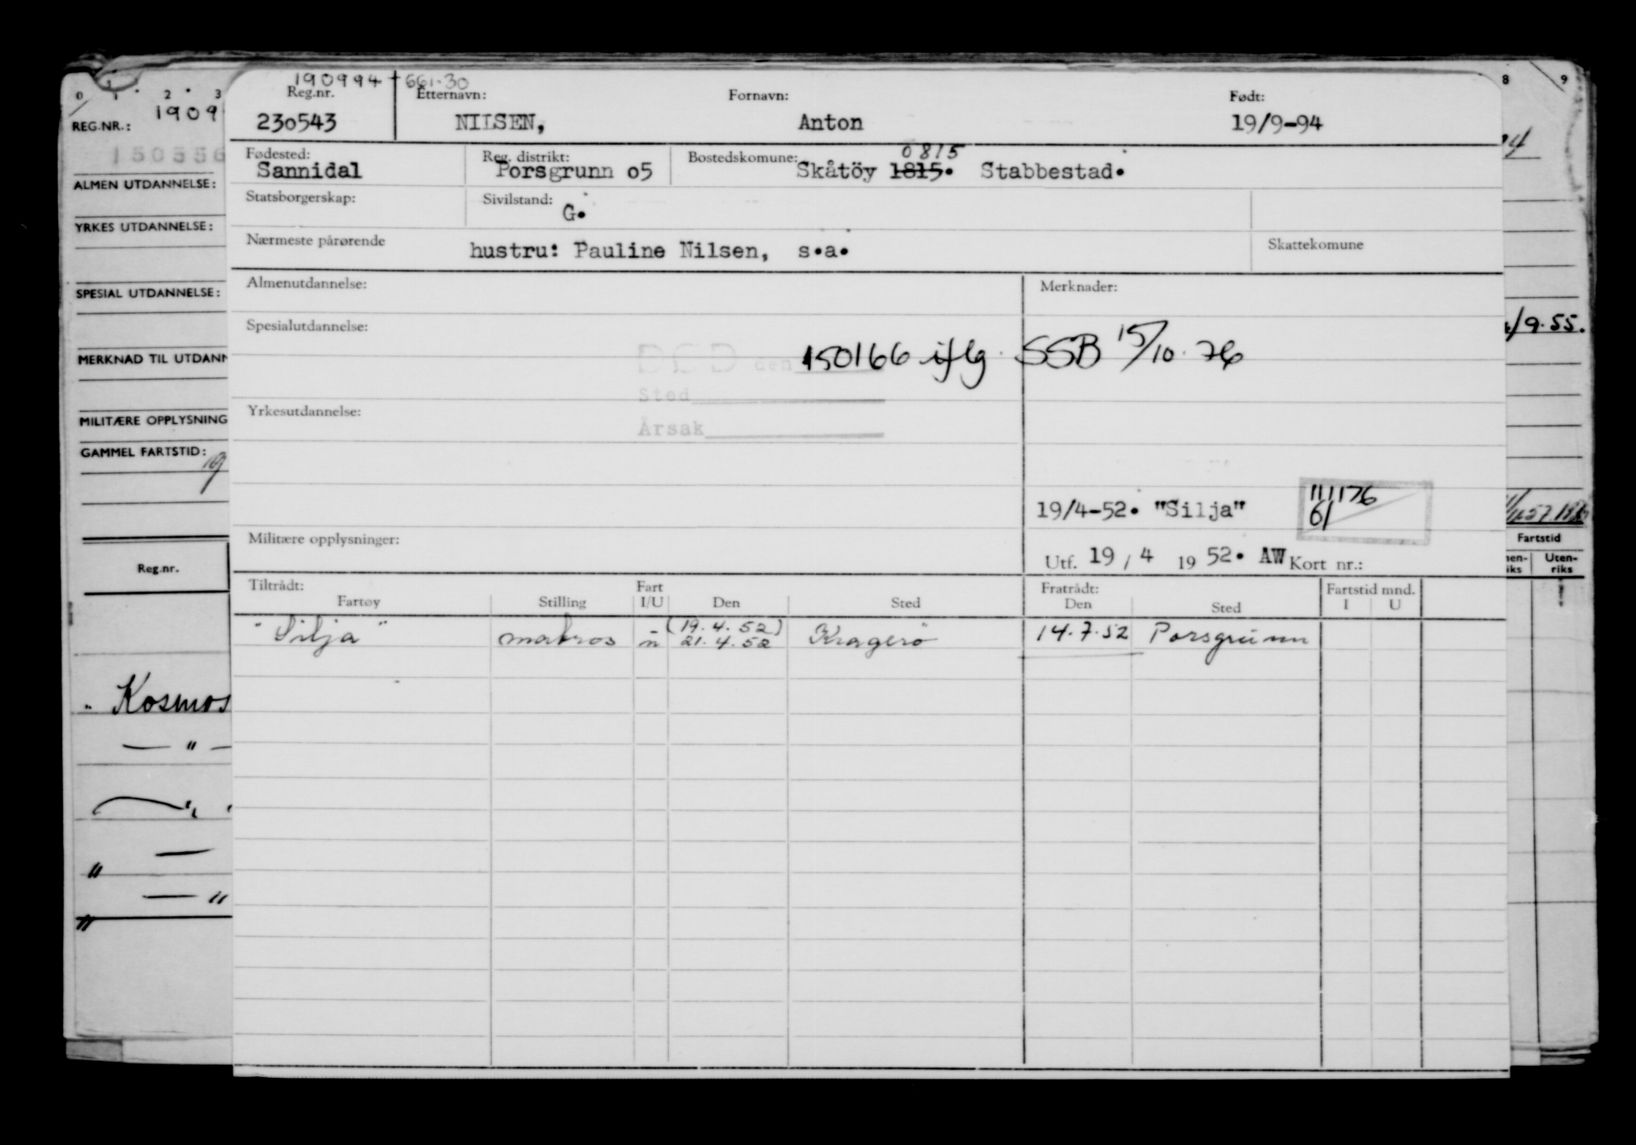 190994 661-30
Reg.nr. Etternavn: Fornavn: Født:
230543 NILSEN, Anton 19/9-94
0815
Fødested: Reg. distrikt: Bostedskomune:
Sannidal Porsgrunn o5 Skåtöy 1815. Stabbestad.
Statsborgerskap: Sivilstand: G.
Nærmeste pårørende hustru: Pauline Nilsen, s.a. Skattekomune
Almenutdannelse: Merknader:
Spesialutdannelse:
DØD den 150166 iflg. SSB 15/10.76
Sted
Yrkesutdannelse:
Årsak
19/4-52. "Silja" 111176
61
Militære opplysninger:
Utf. 19 / 4 19 52. AW Kort nr.:
Tiltrådt: Fart Fratrådt: Fartstid mnd.
Fartøy Stilling I/U Den Sted Den Sted I U
"Silja" matros n (19.4.52) 21.4.52 Kragerö 14.7.52 Porsgrunn
0 1 2 3
1909
REG.NR.:
150556
ALMEN UTDANNELSE:
YRKES UTDANNELSE:
SPESIAL UTDANNELSE:
MERKNAD TIL UTDANN
MILITÆRE OPPLYSNING
GAMMEL FARTSTID:
Reg.nr.
" Kosmos
— " —
"
" —
— "
"
8 9
4
/9.55.
Fartstid
en-
iks
Uten-
riks